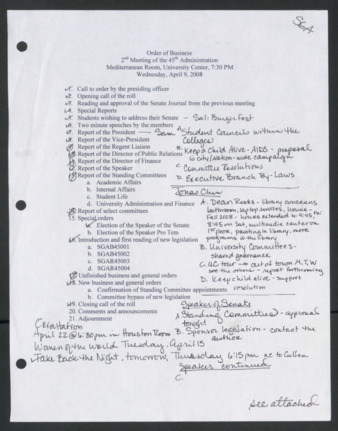 SGA
Order of Business
2nd Meeting of the 45th Administration
Mediterranean Room, University Center, 7:30 PM
Wednesday, April 9, 2008
1. Call to order by the presiding officer
2. Opening call of the roll
3. Reading and approval of the Senate Journal from the previous meeting
4. Special Reports
5. Students wishing to address their Senate - Sal: Burger Fest
6. Two minute speeches by the members
7. Report of the President — Sam
8. Report of the Vice-President
9. Report of the Regent Liaison
10. Report of the Director of Public Relations
11. Report of the Director of Finance
12. Report of the Speaker
13. Report of the Standing Committees
a. Academic Affairs
b. Internal Affairs
c. Student Life
d. University Administration and Finance
14. Report of select committees
15. Special orders
a. Election of the Speaker of the Senate
b. Election of the Speaker Pro Tem
16. Introduction and first reading of new legislation
a. SGAB45001
b. SGAB45002
c. SGAB45003
d. SGAR45004
17. Unfinished business and general orders
18. New business and general orders
a. Confirmation of Standing Committee appointments
b. Committee bypass of new legislation
19. Closing call of the roll
20. Comments and announcements
21. Adjournment
A Student Councils within the Colleges
B. Keep a Child Alive - AIDS - proposal
city/nation-wide campaign
C. Committee Resolutions
D. Executive Branch By-Laws
A. Dean Rooks - library concerns
B. University Committees -
shared governance
C. UC tour → out of town M,T,W
see the others - report forthcoming
D. Keep child alive - support
resolution
Speaker of Senate
A Standing Committees - approval
tonight
B. Sponsor legislation - contact the
author
C.
April 22 @ 6:30 pm in Houston Room
Women of the World Tuesday, April 15
Take Back the Night, tomorrow, Thursday 6:15 pm
Speaker continued
see attached